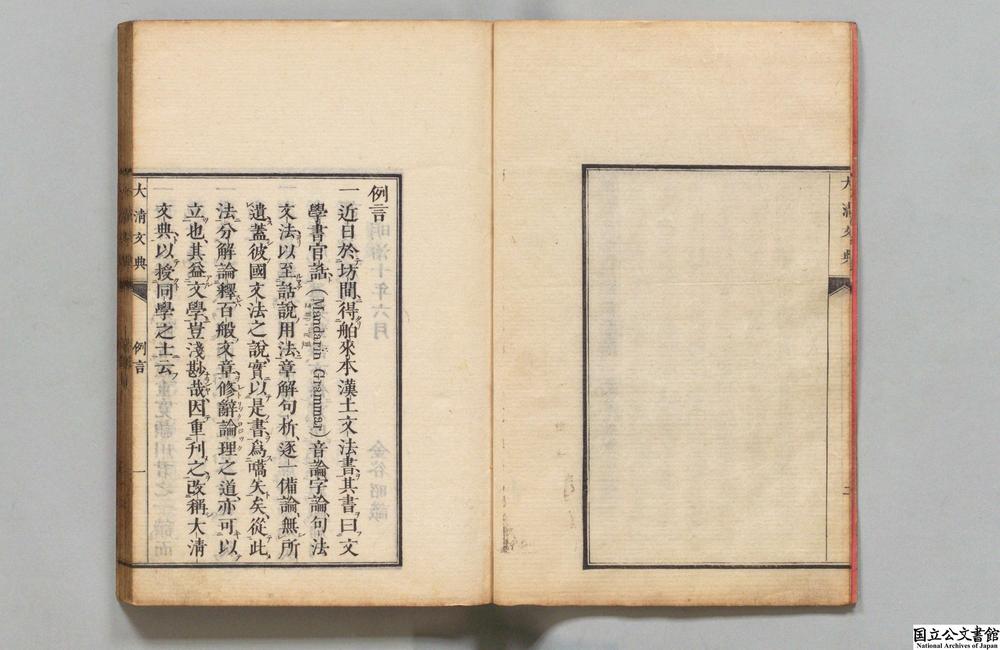 大清文典
二
例言
一近日於坊間得舶來本漢土文法書其書曰文
學書官話(Mandarin Grammar)音論字論句法
文法以至話說用法章解句析逐一備論無所
遺蓋彼國文法之說實以是書爲嚆矢矣從此
法分解論釋百般文章修辭論理之道亦可以
立也其益文學豈淺尠哉因重刊之改稱大淸
文典以授同學之士云
大淸文典
例言
一
明治十年六月
金谷昭識
国立公文書館
National Archives of Japan